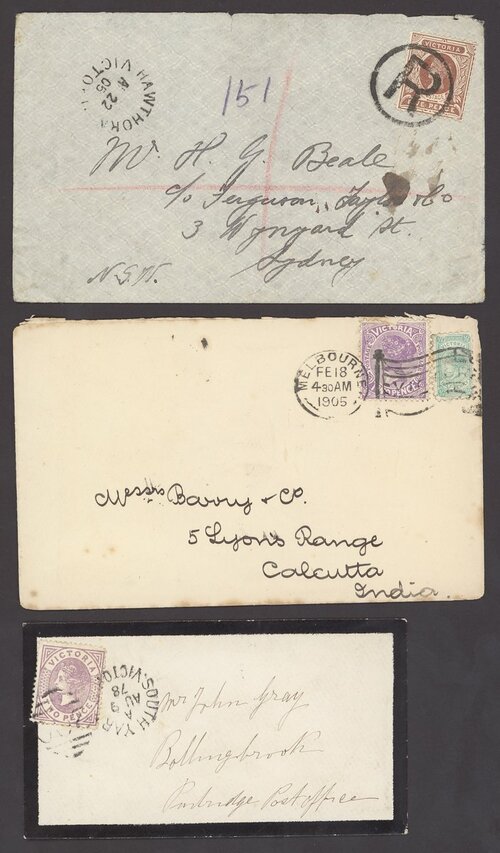 HAWTHORN
A
22
05
VICTO
151
VICTORIA
PENCE
R
Mr. H. G. Beale
c/o Ferguson, Taylor & Co
3 Wynyard St.
Sydney
N.S.W.
MELBOURNE
FE 18
4-30 AM
1905
VICTORIA
PENCE
VICTORIA
Messrs Barry & Co.
5 Lyons Range
Calcutta
India.
VICTORIA
TWO PENCE
SOUTH YAR
A
AU 9
78
VICTO
Mr John Gray
Bollingbrook
Post office